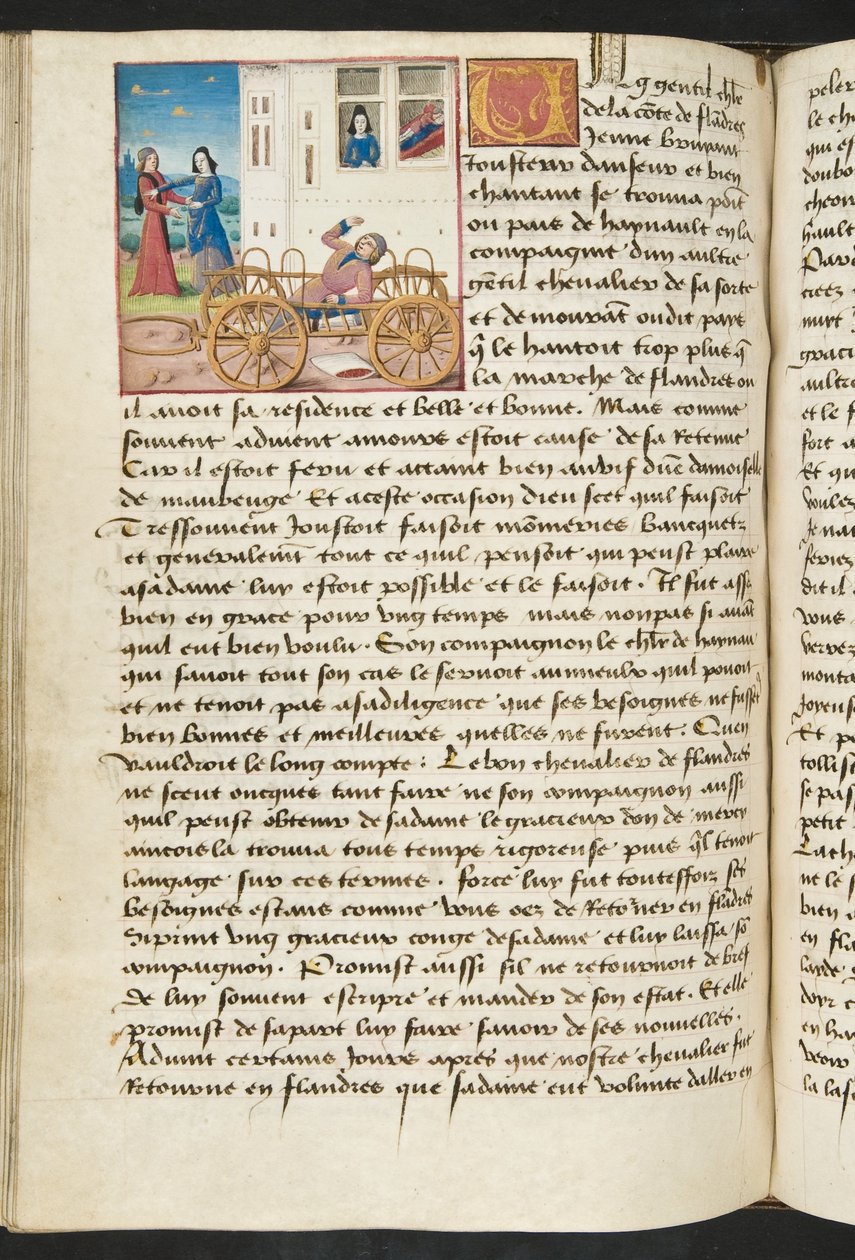 Ung gentil chlr
de la cōte de flādres
Jenne bruyant
Jousteur danseur et bien
chantant se trouva poīt
ou pais de haynault en la
compaignie dun aultre
gētil chevalier de sa sorte
et demourāt oudit pays
q̄ le hantoit trop plus q̄
la marche de flandres ou
il avoit sa residence et belle et bonne. Mais comme
souvent advient amours estoit cause de sa retenue
Car il estoit feru et attaint bien au vif dūe damoiselle
de maubeuge Et a ceste occasion dieu scet quil faisoit
Tressouvent Joustoit faisoit mōmeries bancquetz
et generalemt tout ce quil pensoit qui peust plaire
a sa dame luy estoit possible et le faisoit. Il fut asses
bien en grace pour ung temps mais non pas si avāt
quil eut bien voulu. Son compaignon le chlr de haynau
qui savoit tout son cas le servoit au mieulx quil povoit
et ne tenoit pas a sa diligence que ses besoignes ne fussēt
bien bonnes et meilleures quelles ne furent. Quen
vauldroit le long compte : Le bon chevalier de flandres
ne sceut oncques tant faire ne son compaignon aussi
quil peust obtenir de sa dame le gracieux don de mercy
aincois la trouva tous temps rigoreuse puis ql tenoit
langage sur ces termes. force luy fut touteffoiz ses
besoignes estans comme vous oez de retorner en flādres
Si print ung gracieux conge de sa dame et luy laissa sō
compaignon. Promist aussi sil ne retournoit de bref
de luy souvent escripre et mander de son estat. Et elle
promist de sa part luy faire savoir de ses nouvelles.
Advint certains Jours apres que nostre chevalier fut
Retourne en flandres que sa dame eut volunte daller en